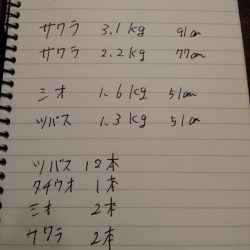 サワラ 3.1kg 91cm
サワラ 2.2kg 77cm
ミオ 1.6kg 51cm
ツバス 1.3kg 51cm
ツバス 12本
タチウオ 1本
ミオ 2本
サワラ 2本